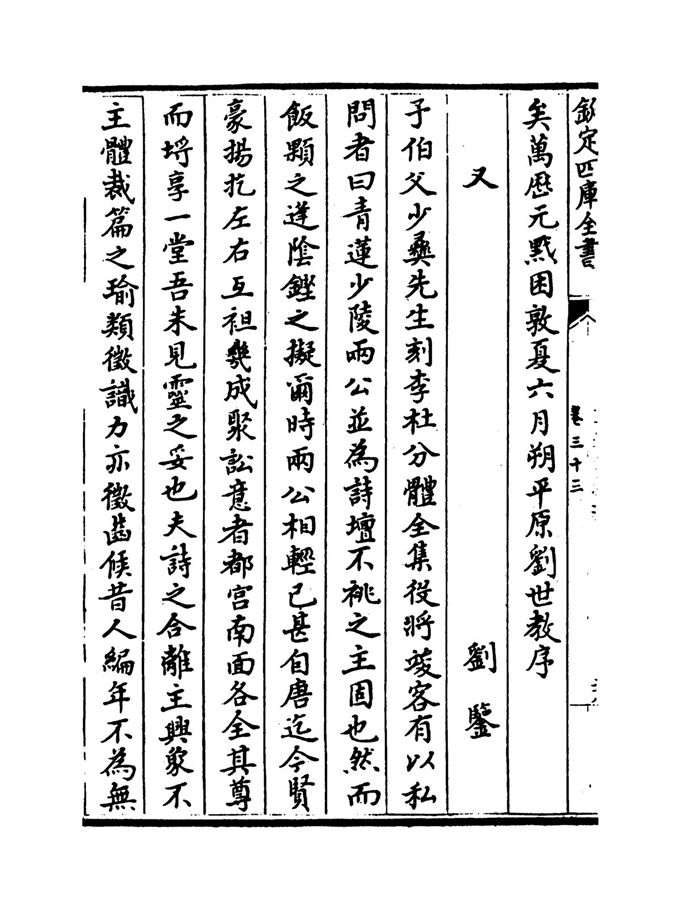 欽定四庫全書
卷三十三
矣萬歷元黓困敦夏六月朔平原劉世教序
又　劉鑒
予伯父少彝先生刻李杜分體全集役將竣客有以私
問者曰青蓮少陵兩公並為詩壇不祧之主固也然而
飯顆之逢陰鏗之擬爾時兩公相輕已甚自唐迄今賢
豪揚扢左右互袒幾成聚訟意者都宫南面各全其尊
而埓享一堂吾未見靈之妥也夫詩之合離主興象不
主體裁篇之瑜類徵識力亦徵齒候昔人編年不為無